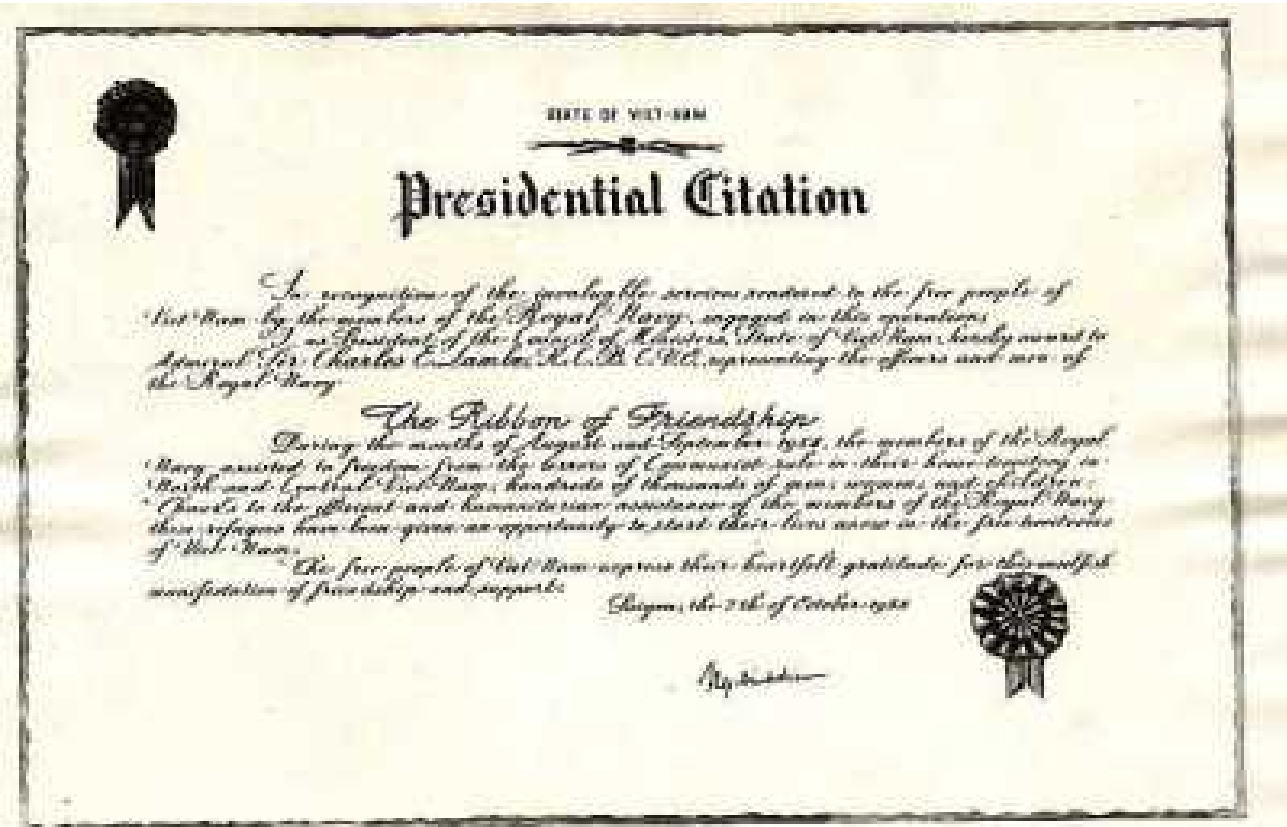 STATE OF VIET-NAM
Presidential Citation
In recognition of the invaluable services rendered to the free people of
Viet Nam by the members of the Royal Navy, engaged in this operation,
I as President of the Council of Ministers, State of Viet Nam, hereby award to
Admiral Sir Charles E. Lambe, K.C.B. C.V.O. representing the officers and men of
the Royal Navy
The Ribbon of Friendship
During the months of August and September 1954, the members of the Royal
Navy assisted to freedom from the terrors of Communist rule in their home territory in
North and Central Viet Nam, hundreds of thousands of men, women, and children.
Thanks to the efficient and humanitarian assistance of the members of the Royal Navy
these refugees have been given an opportunity to start their lives anew in the free territories
of Viet Nam.
The free people of Viet Nam express their heartfelt gratitude for this unselfish
manifestation of friendship and support.
Saigon, the 7th of October